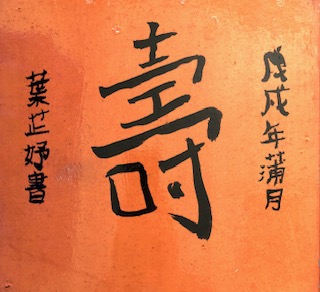 戊戌年蒲月
壽
葉芷妤書